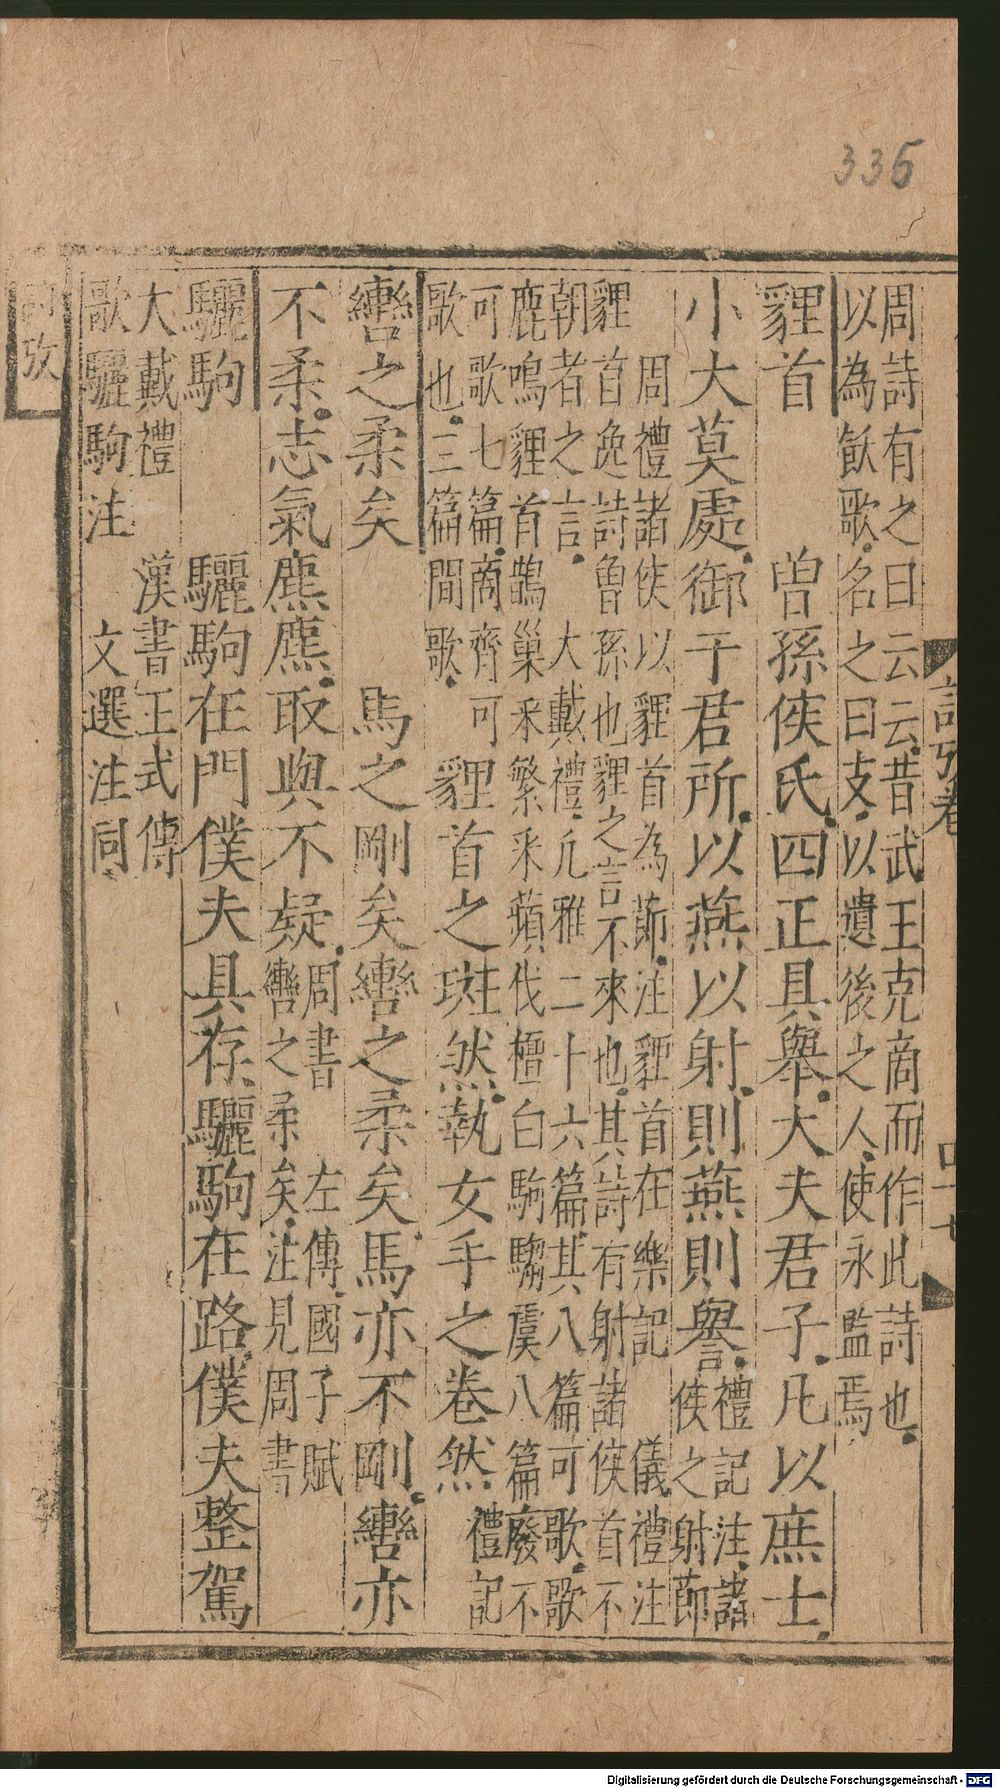 335
周詩有之曰云云昔武王克商而作此詩也
以為飫歌名之曰支以遺後之人使永監焉
貍首　曾孫侯氏四正具舉大夫君子凡以庶士
小大莫處御于君所以燕以射則燕則譽
禮記注諸
侯之射節
周禮諸侯以貍首為節注貍首在樂記　儀禮注
貍首逸詩曾孫也貍之言不來也其詩有射諸侯首不
朝者之言　大戴禮凡雅二十六篇其八篇可歌歌
鹿鳴貍首鵲巢采繁采蘋伐檀白駒騶虞八篇廢不
可歌七篇商齊可
歌也三篇間歌
貍首之斑然執女手之卷然
禮記
轡之柔矣　馬之剛矣轡之柔矣馬亦不剛轡亦
不柔志氣麃麃取與不疑
周書　左傳國子賦
轡之柔矣注見周書
驪駒　驪駒在門僕夫具存驪駒在路僕夫整駕
大戴禮　漢書王式傳
歌驪駒注　文選注同
四十七
攷
Digitalisierung gefördert durch die Deutsche Forschungsgemeinschaft - DFG